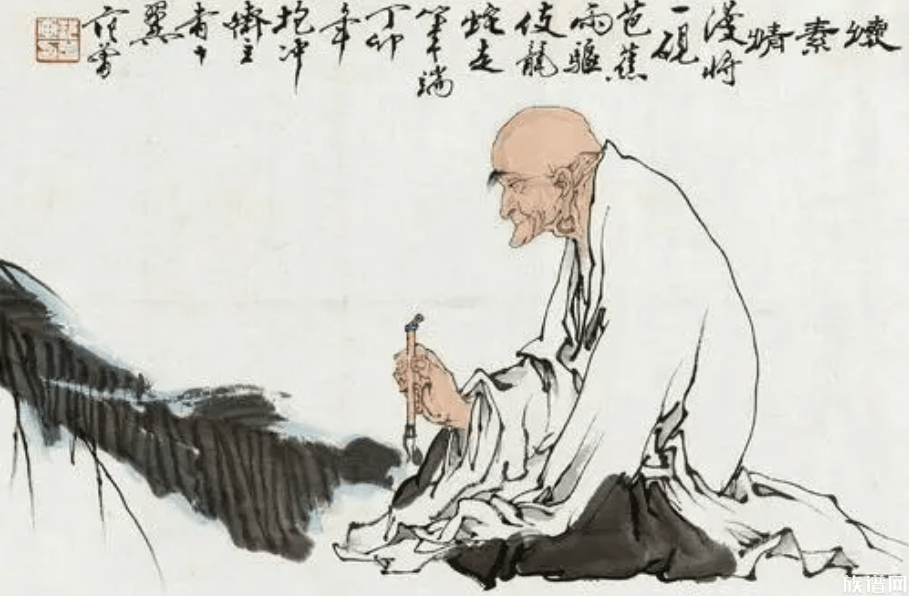 懷
素
情
漫將
一硯
芭蕉
雨驅
使龍
蛇走
筆端
丁卯
年
抱冲
齋主
十
翼
范曾
族谱网